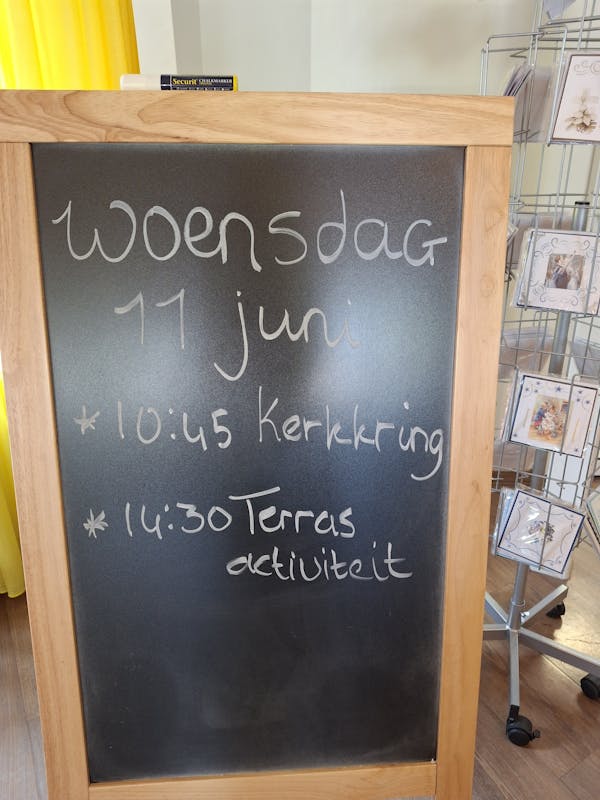 Securit CHALKMARKER
woensdag
11 juni
* 10:45 Kerkkring
* 14:30 Terras
activiteit